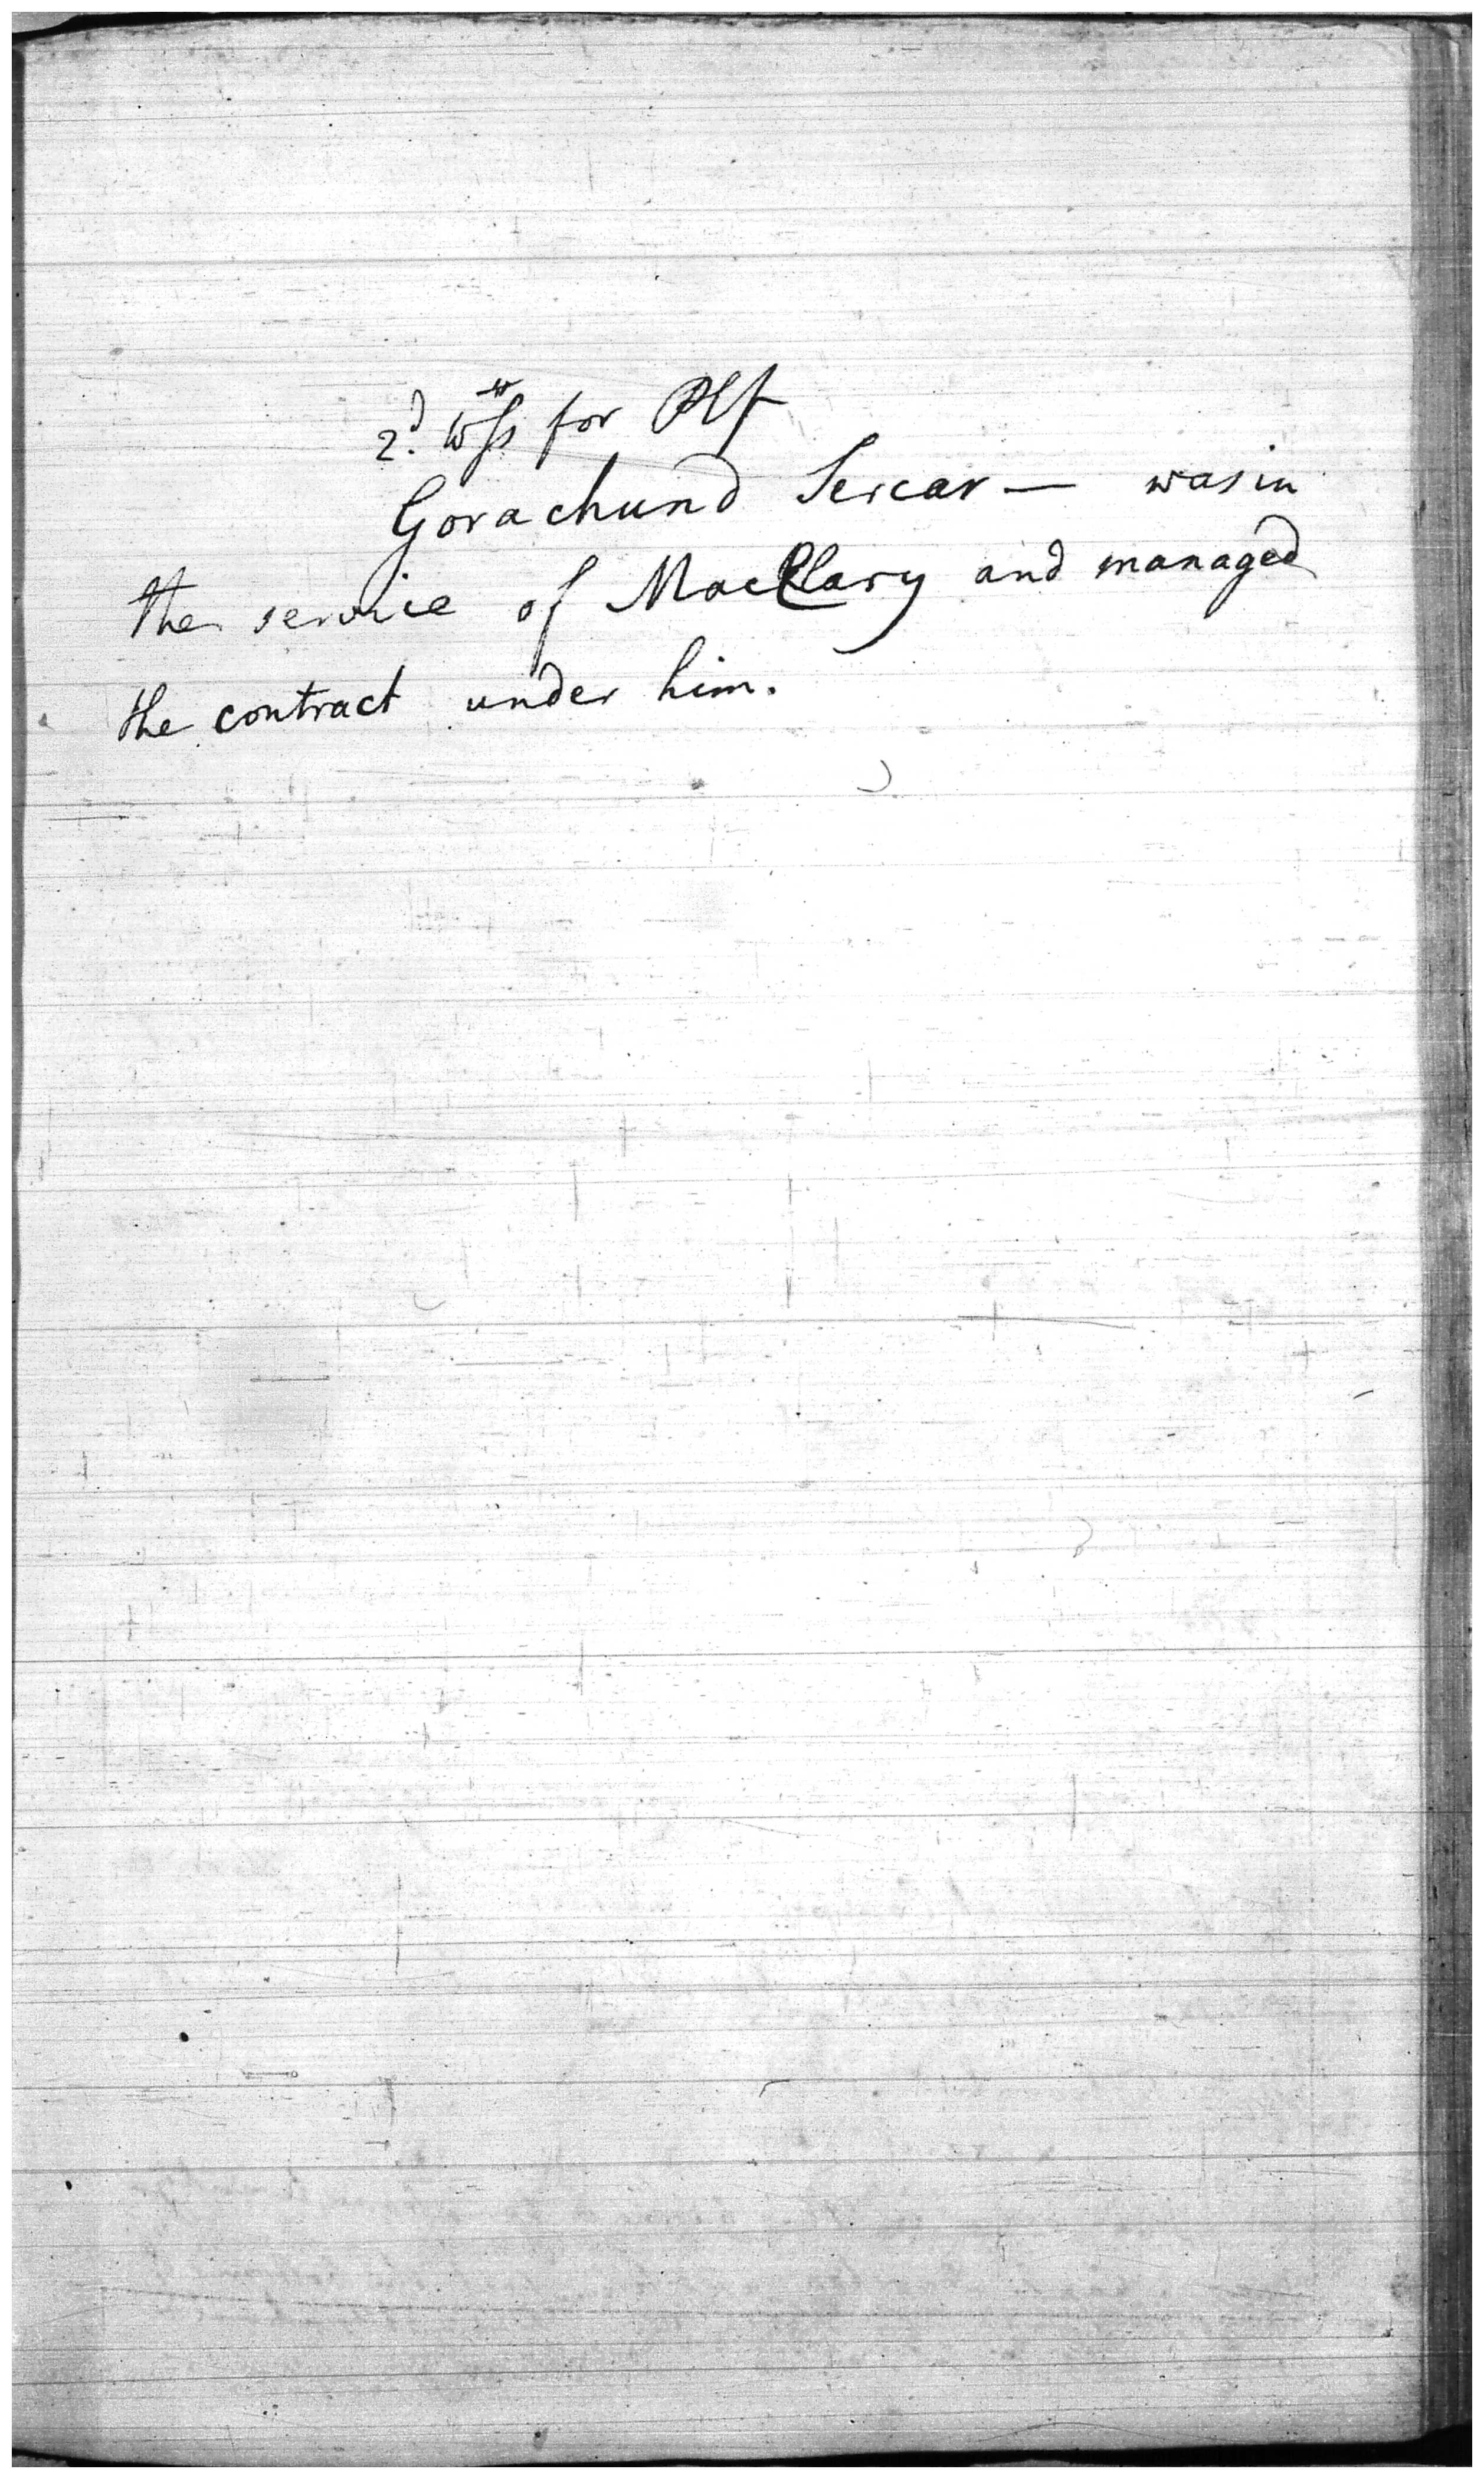 2d. Wss for Plf
Gorachund Sercar — was in
the service of MacClary and managed
the contract under him.